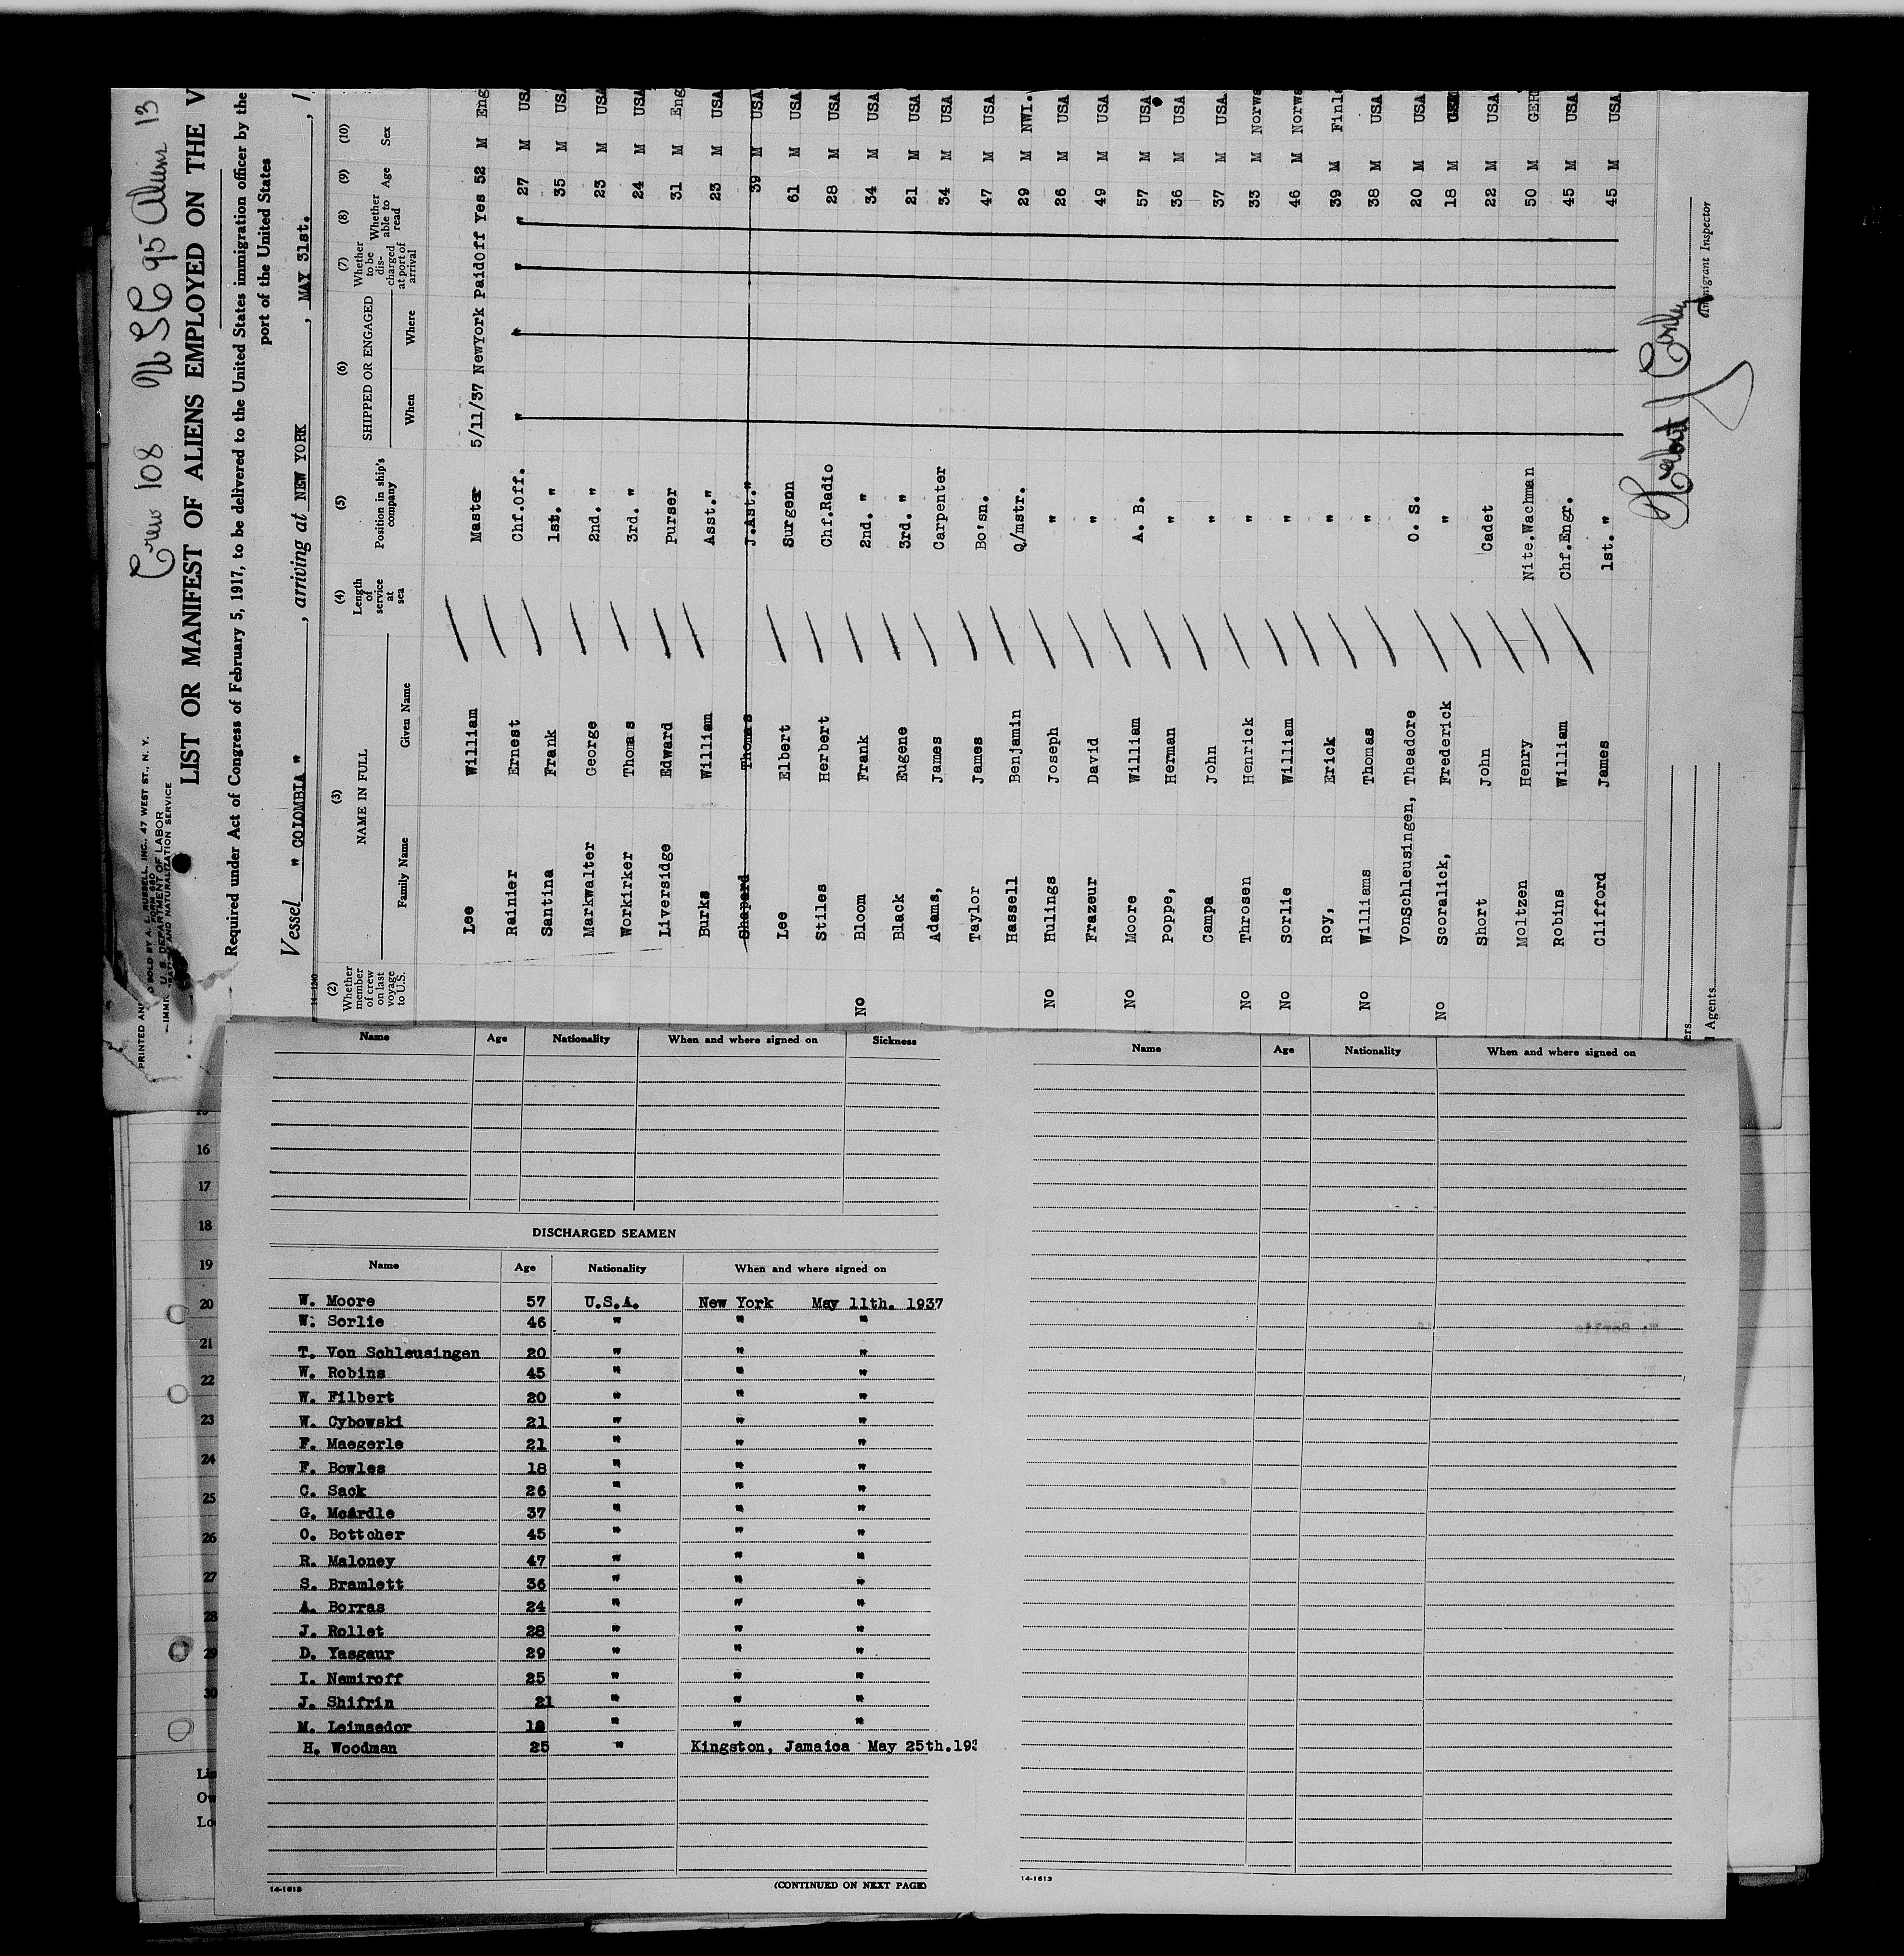 Crew 108 USC 95 Aliens 13
PRINTED AND SOLD BY A. L. RUSSELL, INC., 47 WEST ST., N. Y.
FORM 680
U. S. DEPARTMENT OF LABOR
IMMIGRATION AND NATURALIZATION SERVICE
LIST OR MANIFEST OF ALIENS EMPLOYED ON THE V
Required under Act of Congress of February 5, 1917, to be delivered to the United States immigration officer by the
port of the United States
Vessel " COLOMBIA ", arriving at NEW YORK, MAY 31st., 1
14-1240
(2) Whether member of crew on last voyage to U.S. (3) NAME IN FULL Family Name Given Name (4) Length of service at sea (5) Position in ship's company (6) SHIPPED OR ENGAGED When Where (7) Whether to be discharged at port of arrival (8) Whether able to read (9) Age (10) Sex
Lee William Master 5/11/37 NewYork Paidoff Yes 52 M Eng
Rainier Ernest Chf.Off. " " " " 27 M USA
Santina Frank 1st. " 35 M USA
Markwalter George 2nd. " 23 M USA
Workirker Thomas 3rd. " 24 M USA
Liversidge Edward Purser 31 M Eng
Burks William Asst." 23 M USA
Shapard Thomas J.Ast." 39 M USA
Lee Elbert Surgeon 61 M USA
Stiles Herbert Chf.Radio 28 M USA
No Bloom Frank 2nd. " 34 M USA
Black Eugene 3rd. " 21 M USA
Adams, James Carpenter 34 M USA
Taylor James Bo'sn. 47 M USA
Hassell Benjamin Q/mstr. 29 M NWI.
No Hulings Joseph " 26 M USA
Frazeur David " 49 M USA
No Moore William A. B. 57 M USA
Poppe, Herman " 36 M USA
Campa John " 37 M USA
No Throsen Henrick " 33 M Norwa
No Sorlie William " 46 M Norwa
Roy, Erick " 39 M Finla
No Williams Thomas " 38 M USA
VonSchleusingen, Theadore O. S. 20 M USA
No Scoralick, Frederick " 18 M
Short John Cadet 22 M USA
Moltzen Henry Nite.Wachman 50 M GER
Robins William Chf.Engr. 45 M USA
Clifford James 1st. " 45 M USA
Immigrant Inspector
ers
Agents
Name Age Nationality When and where signed on Sickness
DISCHARGED SEAMEN
Name Age Nationality When and where signed on
W. Moore 57 U.S.A. New York May 11th. 1937
W. Sorlie 46 " " "
T. Von Schleusingen 20 " " "
W. Robins 45 " " "
W. Filbert 20 " " "
W. Cybowski 21 " " "
F. Maegerle 21 " " "
F. Bowles 18 " " "
C. Sack 26 " " "
G. McArdle 37 " " "
O. Bottcher 45 " " "
R. Maloney 47 " " "
S. Bramlett 36 " " "
A. Borras 24 " " "
J. Rollet 28 " " "
D. Yasgaur 29 " " "
I. Nemiroff 25 " " "
J. Shifrin 21 " " "
M. Leimsedor " " "
H. Woodman 25 " Kingston, Jamaica May 25th.193
14-1613
(CONTINUED ON NEXT PAGE)
Name Age Nationality When and where signed on
14-1613
16
17
18
19
20
21
22
23
24
25
26
27
28
29
30